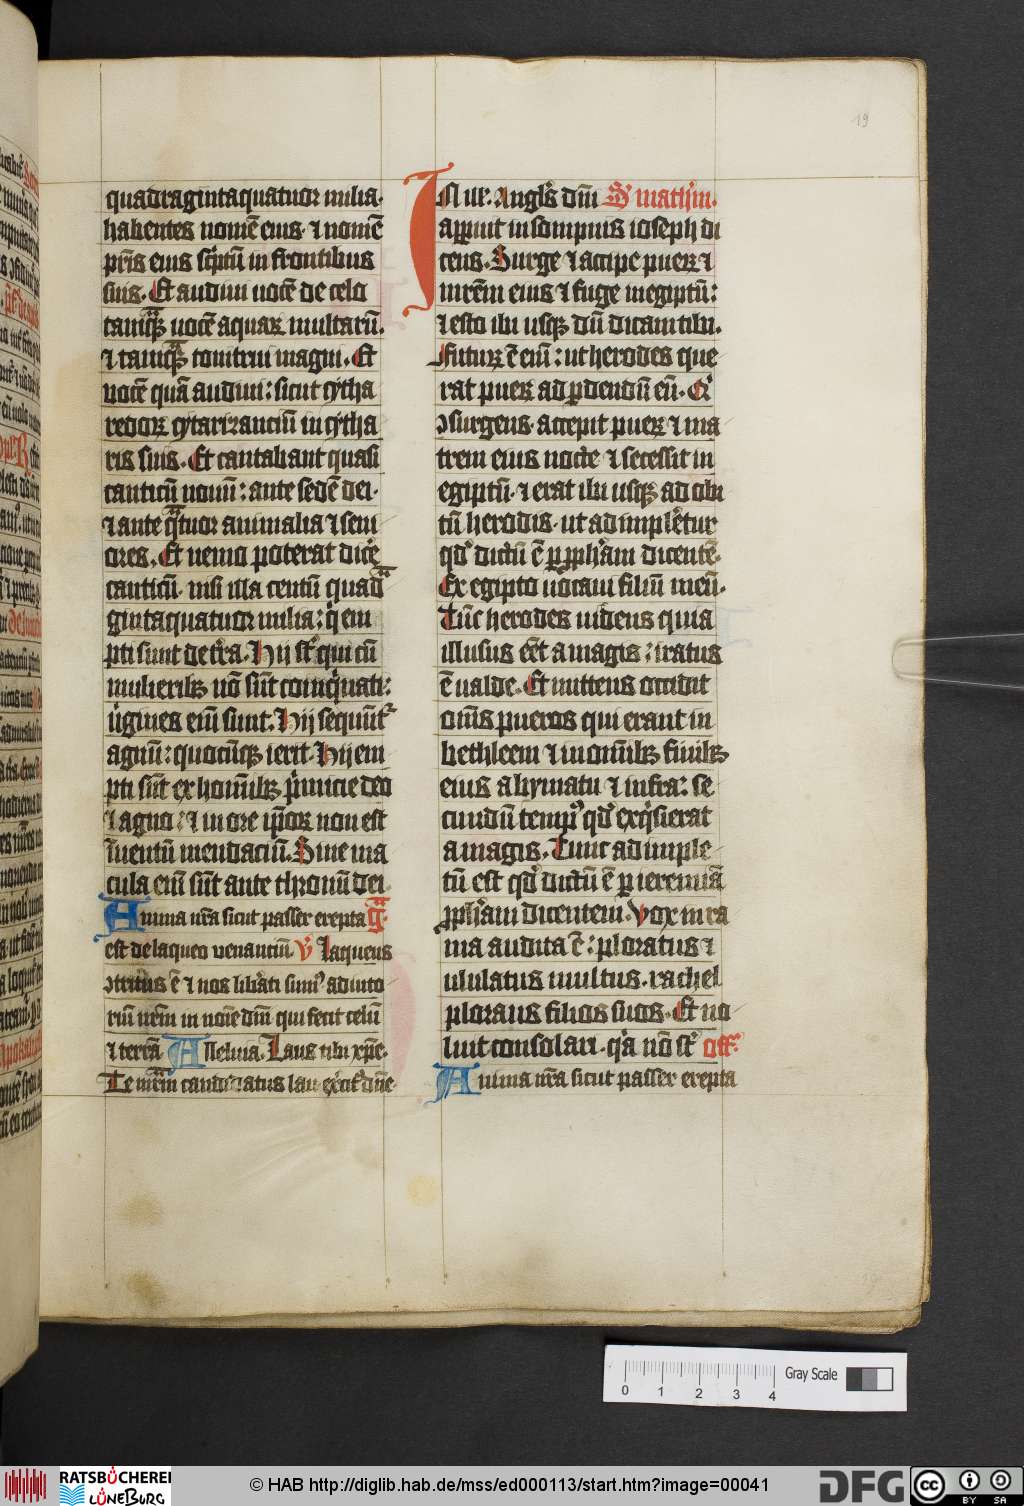 19
quadragintaquatuor milia·
habentes nomē eius· ⁊ nomē
pr̄is eius sc̓ptū in frontibus
suis· Et audiui uocē de celo
tamqᷓꝫ uocē aquaꝝ multarū·
⁊ tamqᷓꝫ tonitrui magni· Et
uocē quā audiui: sicut cytha
redoꝝ cytarizanciū in cytha
ris suis· Et cantabant quasi
canticū nouū: ante sedē dei·
⁊ ante qᷓtuor animalia ⁊ seni
ores· Et nemo poterat dic̓e
canticū· nisi illa centū quadᷓ
gintaquatuor milia: q̓ em
pti sunt de t̓ra· Hij st̄ qui cū
mulieribꝫ nō sūt coinq̓nati:
ūgines enī sunt· Hij sequūt᷑
agnū: quocūqꝫ ierit· Hij em
pti sūt ex homībꝫ p̓micie deo
⁊ agno: ⁊ in ore ip̄oꝝ non est
īuentū mendaciū· Sine ma
cula enī sūt ante thronū dei·
Anima nr̄a sicut passer erepta gᷓ
est de laqueo venanciū· v̓ Laqueus
ꝯtritus ē ⁊ nos lib̓ati sumꝰ adiuto
riū nr̄m in noīe dn̄i qui fecit celū
⁊ terrā· Alleluia· Laus tibi xp̄e·
Te mr̄m candidatus lau· ex̓cit᷑ dn̄e·
IN ill'· Angl's dn̄i S' math'm·
apparuit in sompnis ioseph di
cens· Surge ⁊ accipe pueꝝ ⁊
mr̄em eius ⁊ fuge in egiptū:
⁊ esto ibi usqꝫ dū dicam tibi·
Futuꝝ ē enī: ut herodes que
rat pueꝝ ad ꝑdendū eū· Q̓
ꝯsurgens· accepit pueꝝ ⁊ ma
trem eius nocte ⁊ secessit in
egiptū· ⁊ erat ibi usqꝫ ad obi
tū herodis· ut adimpl̓etur
qd̓ dictū ē ꝑ ꝓph̄am dicentē·
Ex egipto uocaui filiū meū·
Tūc herodes uidens quia
illusus eēt a magis: iratus
ē ualde· Et mittens occidit
omīs pueros qui erant in
bethleem ⁊ in omībꝫ finibꝫ
eius a bymatu ⁊ infra: se
cundū tempꝰ qd̓ exq̓sierat
a magis· Tunc adimple
tū est qd̓ dictū ē ꝑ ieremiā
ꝓph̄am dicentem· Vox in ra
ma audita ē: ploratus ⁊
ululatus multus· rachel
plorans filios suos· Et no
luit consolari· q̓a nō st̄ off·
Anima nr̄a sicut passer erepta
0 1 2 3 4 Gray Scale
RATSBÜCHEREI LÜNEBURG
© HAB http://diglib.hab.de/mss/ed000113/start.htm?image=00041
DFG
cc BY SA